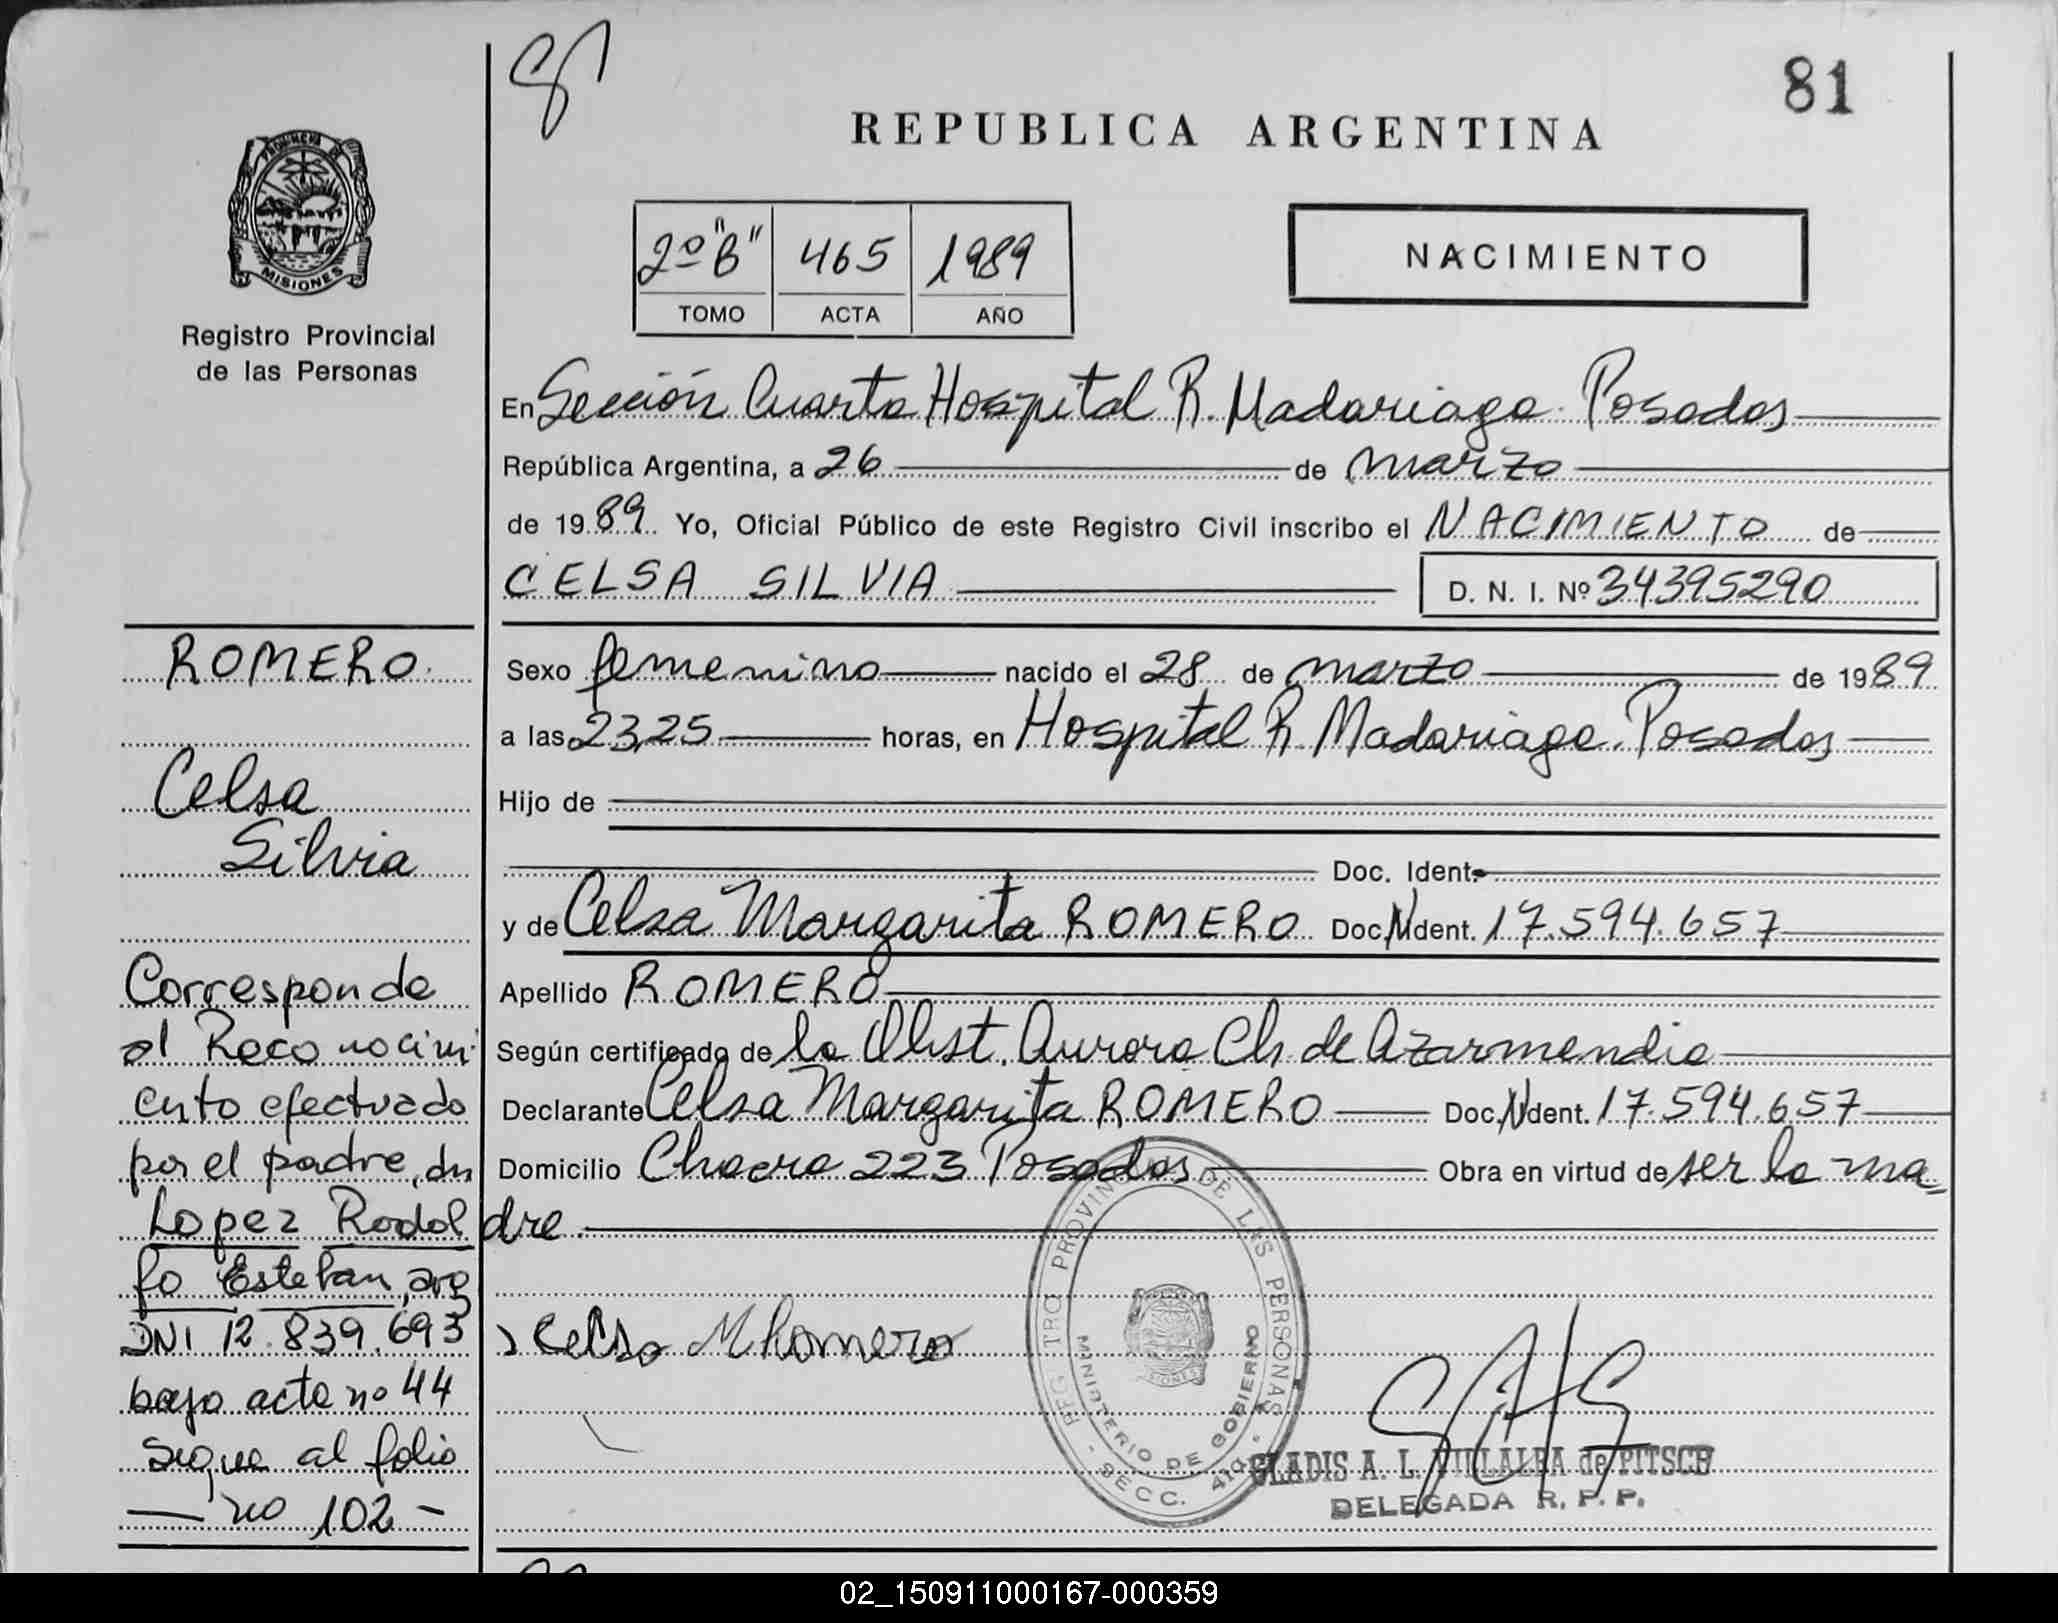 81
REPUBLICA ARGENTINA
PROVINCIA DE
MISIONES
Registro Provincial
de las Personas
2º "B" 465 1989
TOMO ACTA AÑO
NACIMIENTO
En Sección Cuarta Hospital R. Madariaga. Posadas
República Argentina, a 26 de marzo
de 1989. Yo, Oficial Público de este Registro Civil inscribo el NACIMIENTO de
CELSA SILVIA D. N. I. Nº 34395290
Sexo femenino nacido el 28 de marzo de 1989
a las 23,25 horas, en Hospital R. Madariaga. Posadas
Hijo de
Doc. Ident.
y de Celsa Margarita ROMERO Doc. Ident. 17.594.657
Apellido ROMERO
Según certificado de la Obst. Aurora Ch. de Azarmendia
Declarante Celsa Margarita ROMERO Doc. Ident. 17.594.657
Domicilio Chacra 223 Posadas Obra en virtud de ser la ma
dre.
Celsa M Romero
REGISTRO PROVINCIAL DE LAS PERSONAS
MINISTERIO DE GOBIERNO
- SECC. 4ta. -
MISIONES
GLADIS A. L. VILLALBA de PITSCH
DELEGADA R. P. P.
ROMERO.
Celsa
Silvia
Corresponde
al Reconocimi
ento efectuado
por el padre, dn
Lopez Rodol
fo Esteban, arg
DNI 12.839.693
bajo acta nº 44
sigue al folio
— nº 102 -
02_150911000167-000359